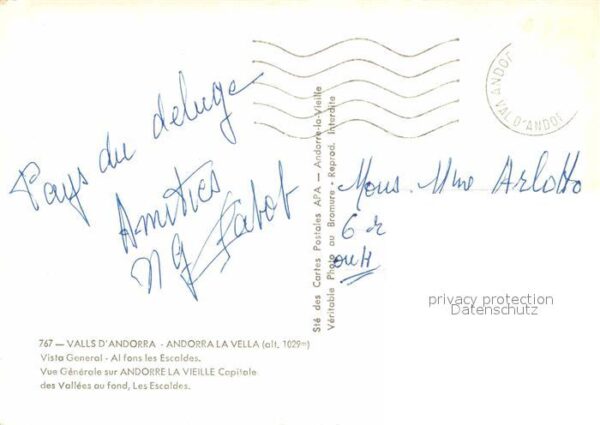 Pays du deluge
Amitiés
Mons. Mme Arlotto
6 r
ANDOR
VAL D'ANDOR
Sté des Cartes Postales APA — Andorre-la-Vieille
Véritable Photo au Bromure - Reprod. Interdite
767 — VALLS D'ANDORRA - ANDORRA LA VELLA (alt. 1029m)
Vista General - Al fons les Escaldes.
Vue Générale sur ANDORRE LA VIEILLE Capitale
des Vallées au fond, Les Escaldes.
privacy protection
Datenschutz